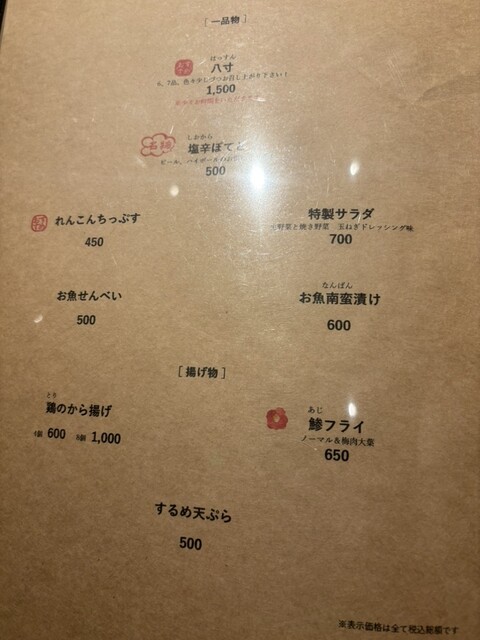 [一品物]
はっすん
八寸
6、7品、色々少しづつお召し上がり下さい！
1,500
しおから
塩辛ぽてと
ビール、ハイボール
500
れんこんちっぷす
450
特製サラダ
野菜と焼き野菜 玉ねぎドレッシング味
700
お魚せんべい
500
なんばん
お魚南蛮漬け
600
[揚げ物]
とり
鶏のから揚げ
600 1,000
あじ
鯵フライ
ノーマル＆梅肉大葉
650
するめ天ぷら
500
※表示価格は全て税込総額です